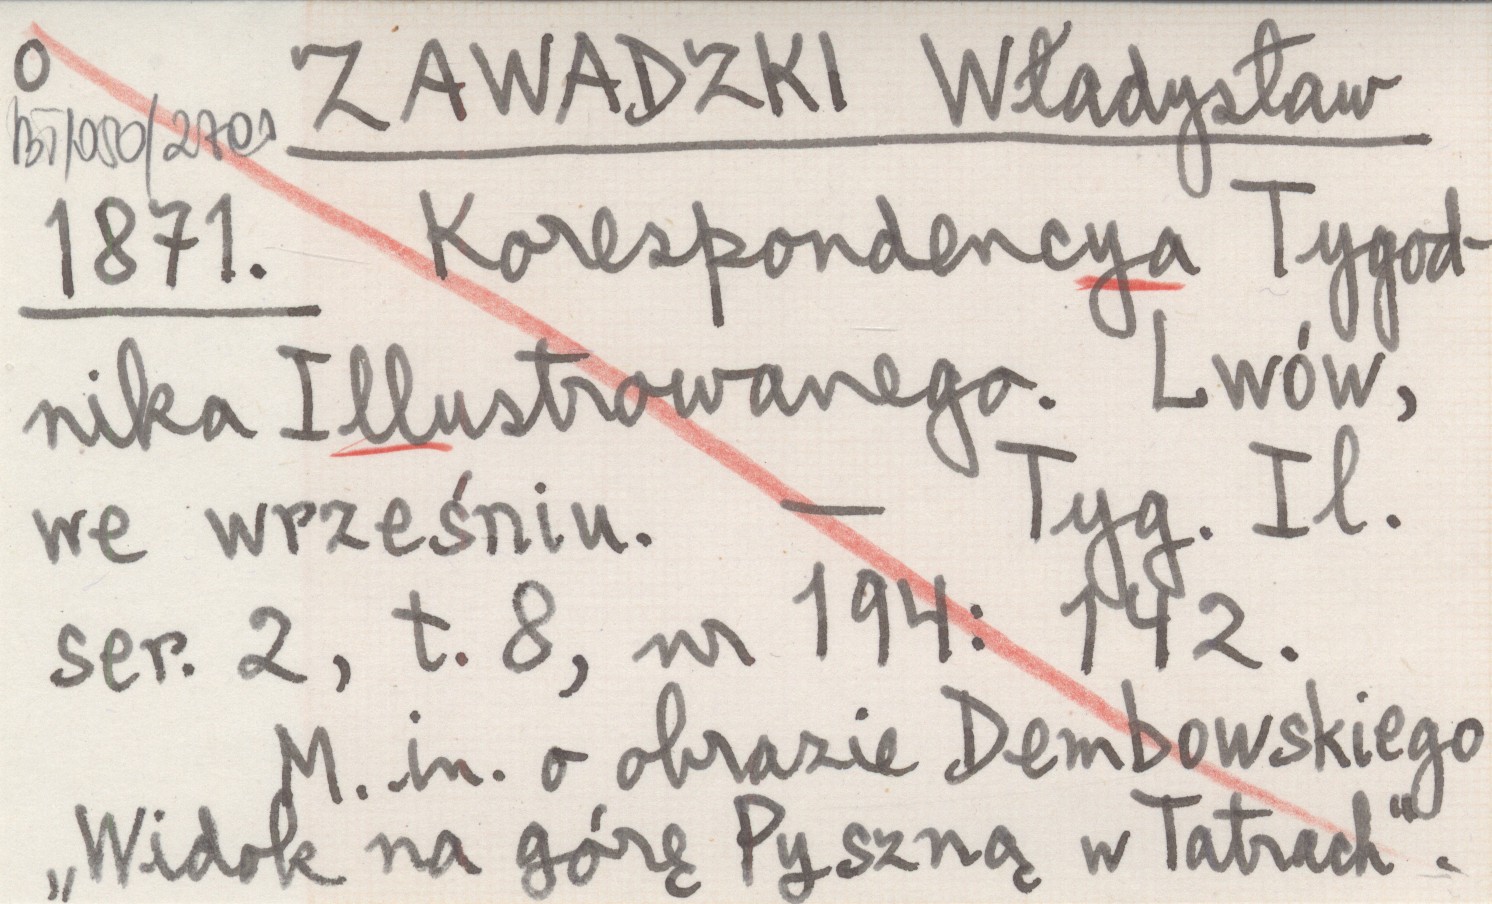 O ZAWADZKI Władysław
1871. Korespondencya Tygod-
nika Illustrowanego. Lwów,
we wrześniu. — Tyg. Il.
ser. 2, t. 8, nr 194: 142.
M. in. o obrazie Dembowskiego
„Widok na górę Pyszną w Tatrach".